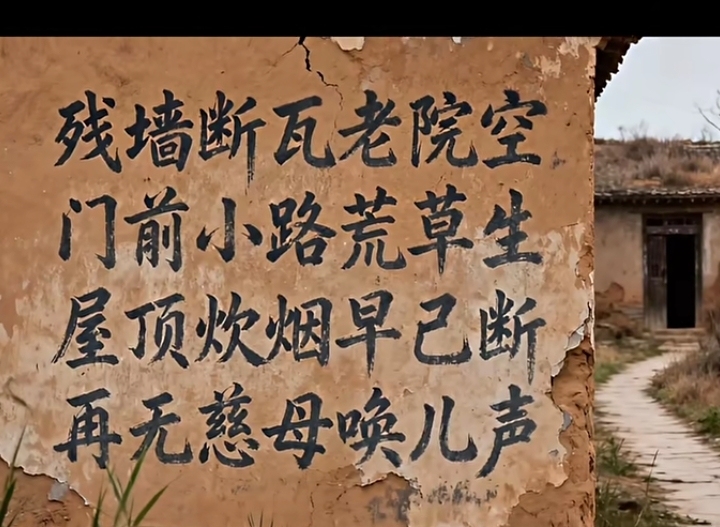 残墙断瓦老院空
门前小路荒草生
屋顶炊烟早已断
再无慈母唤儿声